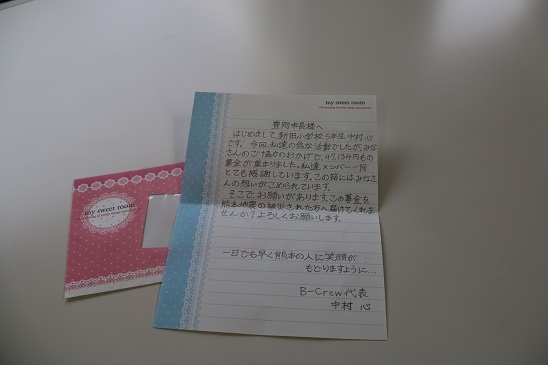 my sweet room
豊岡市長様へ
はじめまして新田小学校5年生中村心
です。今回、私達の急な活動でしたが、みな
さんのご協力のおかげで、47,134円もの
募金が集まりました。私達メンバー一同
とても感謝しています。この箱にはみなさ
んの想いがこめられています。
そこで、お願いがあります。この募金を
熊本地震の被災された方へ届けてくれま
せんか？よろしくお願いします。
一日でも早く熊本の人に笑顔が
もどりますように…
B-Crew代表
中村 心
my sweet room